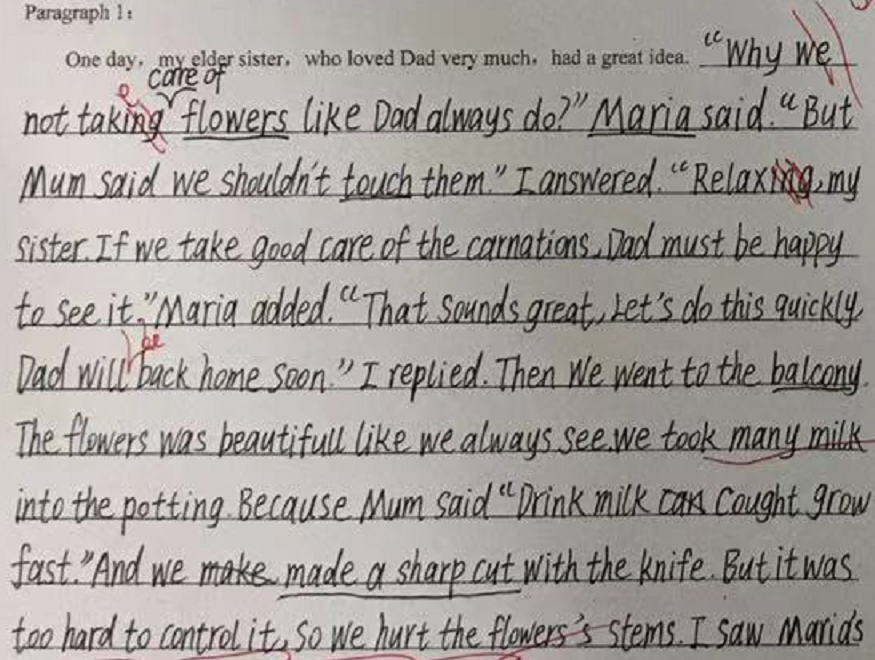 Paragraph 1:
One day, my elder sister, who loved Dad very much, had a great idea. "Why we
care of
e
not taking flowers like Dad always do?" Maria said. "But
Mum said we shouldn't touch them." I answered. "Relaxing, my
sister. If we take good care of the carnations, Dad must be happy
to see it." Maria added. "That sounds great, Let's do this quickly,
be
Dad will back home soon." I replied. Then We went to the balcony.
The flowers was beautifull like we always see. we took many milk
into the potting. Because Mum said "Drink milk can Cought grow
fast." And we make made a sharp cut with the knife. But it was
too hard to control it, So we hurt the flowers's stems. I saw Maria's